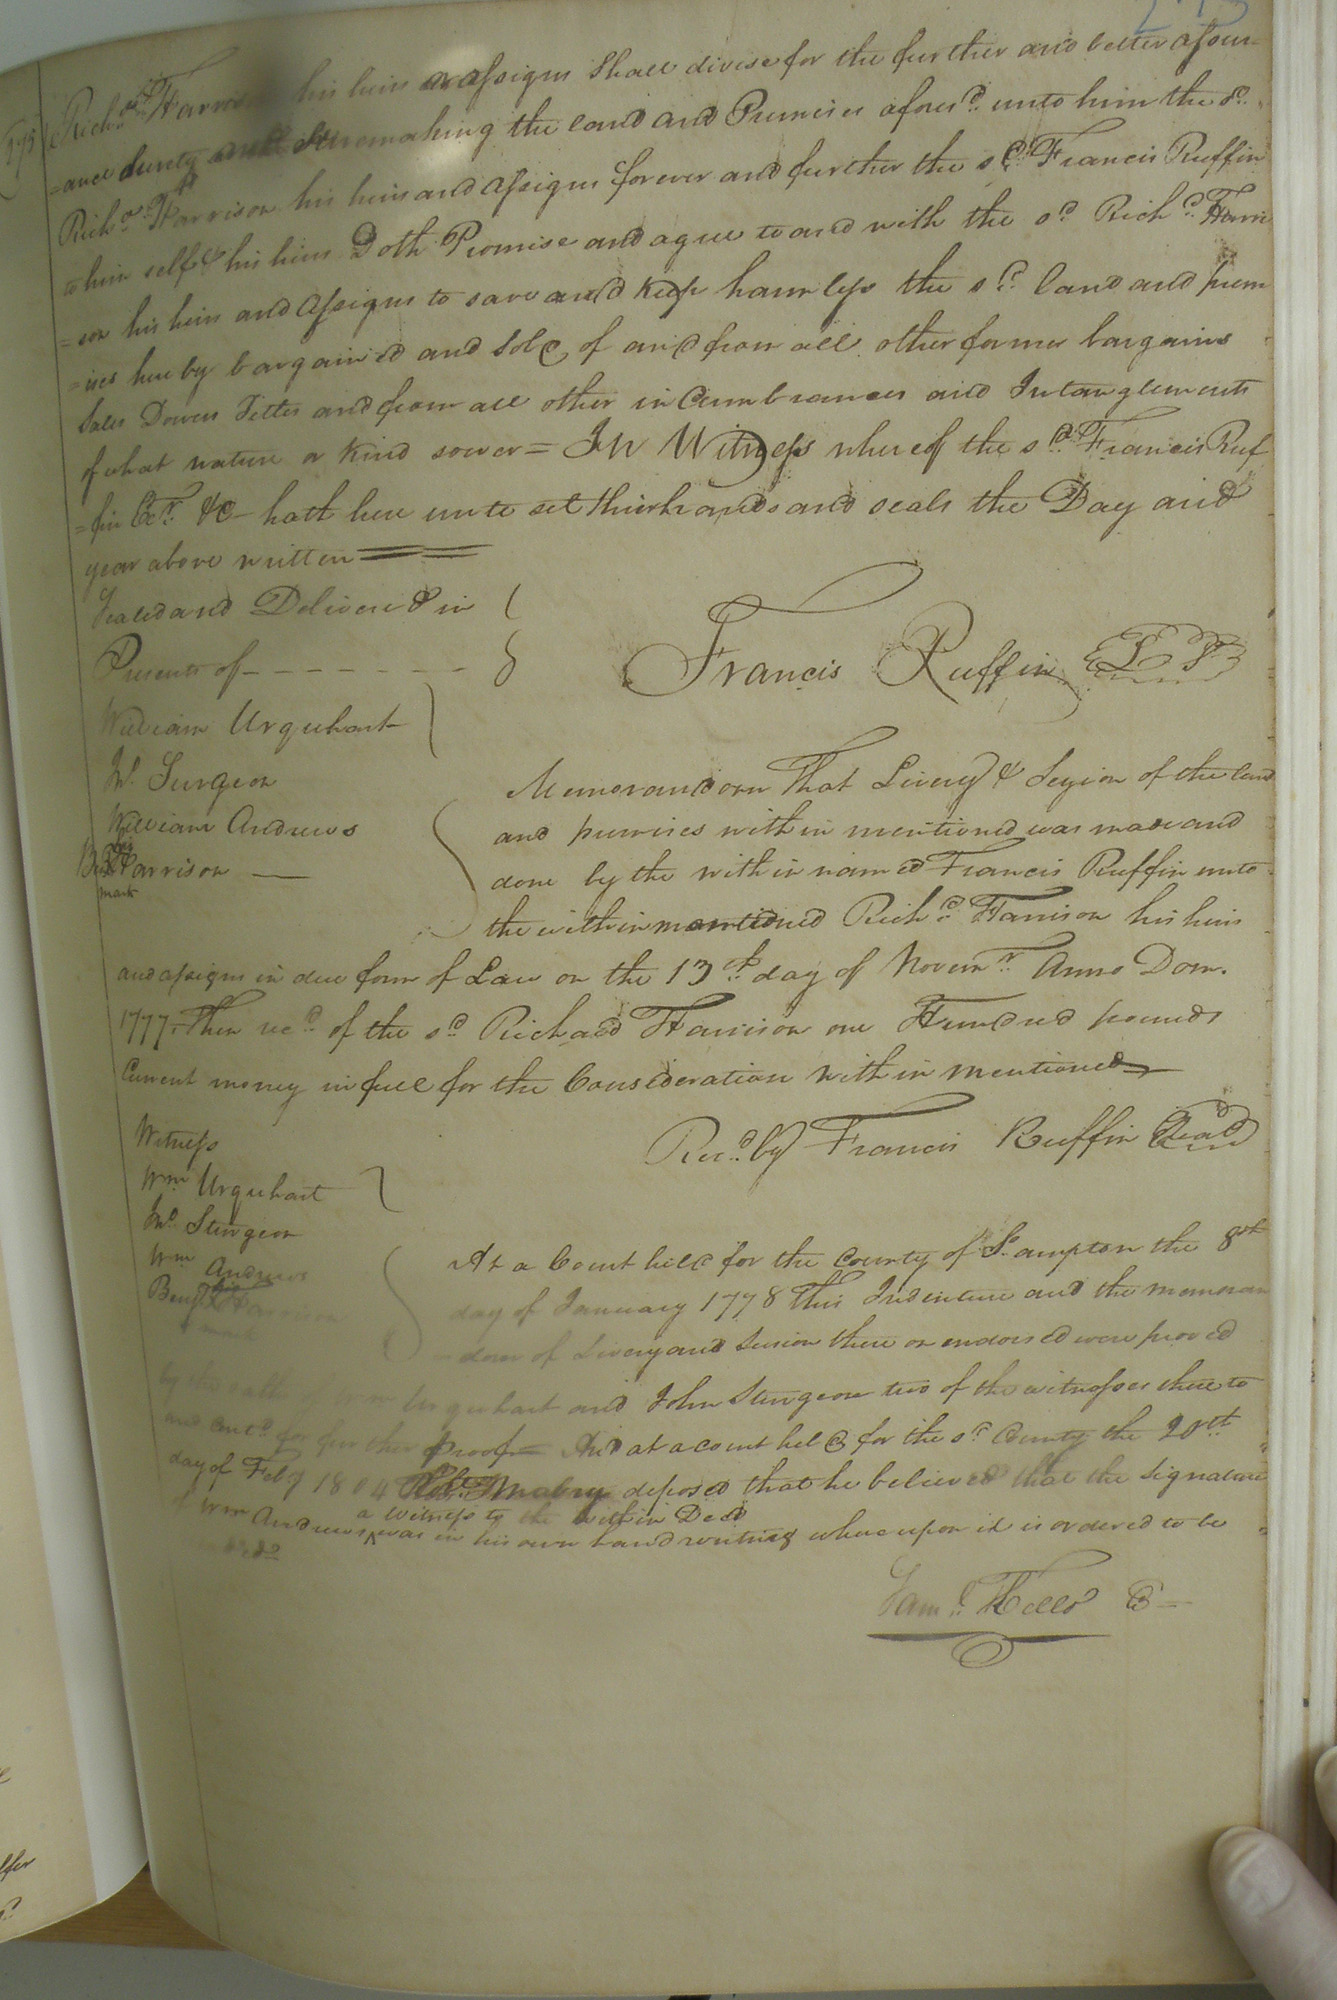 275
Rich.d Harrison his heirs or assigns Shall divise for the further and better assur-
=ance surety making the land and Premises afores.d unto him the s.d
Rich.d Harrison his heirs and assigns forever and further the s.d Francis Ruffin
to him self & his heirs Doth Promise and agree to and with the s.d Rich.d Harri
=son his heirs and assigns to save and keep harmless the s.d land and prem
=ises hereby bargained and Sold of and from all other former bargains
Sales Dowers Titles and from all other incumbrances and Intanglements
of what nature or Kind soever = In Witness whereof the s.d Francis Ruf
=fin Ex.r &c - hath here unto set their hands and seals the Day and
year above written
Sealed and Delivered in
Presents of - - - - - - -
Francis Ruffin L S
William Urquhart
Jn.o Surgeon
William Andrews
his
Harrison
mark
Memorandom That Livery & Sezion of the land
and premises within mentioned was made and
done by the within named Francis Ruffin unto
the within mentioned Rich.d Harrison his heirs
and assigns in due form of Law on the 13.th day of Novem.r Anno Dom.
1777. Then rec.d of the s.d Richard Harrison one Hundred pounds
Current money in full for the Consideration within mentioned
Rec.d by Francis Ruffin Seal
Witness
Wm Urquhart
Jn.o Sturgeon
Wm Andrews
Benj Harrison
mark
At a Court held for the County of S.ampton the 8th
day of January 1778 This Indenture and the memoran
dom of Livery and Seesion there on endorsed were proved
by the Urquhart and John Sturgeon two of the witnesses there to
and Cont.d for further proof = And at a Court held for the s.d County the 20th
day of Feb.y 1804 Rob.t Mabry deposed that he believed that the Signature
a Witness to the within Deed
of Wm Andrews ^ was in his own hand writing where upon it is ordered to be
Sam.l Kello C